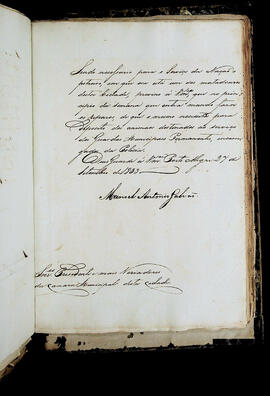 Sendo necessario para o serviço da Nação o
potreiro, em que ora está um dos matadouros
desta Cidade, previno a Vmces que no prin-
cipio da semana que entra mando fazer
os reparos, de que o mesmo necessita para
deposito de animaes destinados ao serviço
da Guardas Municipaes Permanentes, encarre-
gadas da Policia.
Deus Guarde a Vmces Porto Alegre 27 de
Setembro de 1833
Manoel Antonio Galvão
Snres Presidente e mais Vereadores
da Camara Municipal desta Cidade